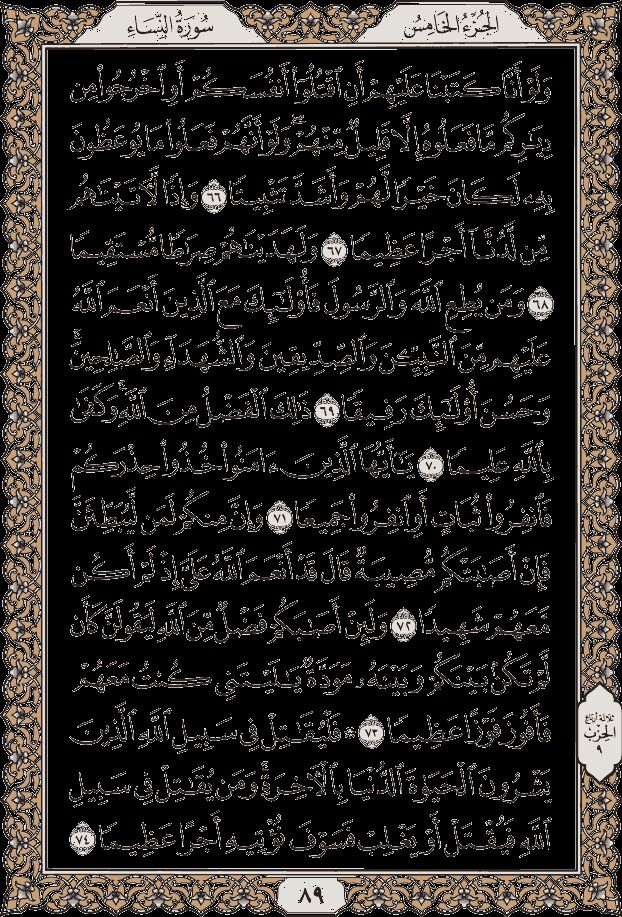 الجزء الخامس
سورة النساء
وَلَوْ أَنَّا كَتَبْنَا عَلَيْهِمْ أَنِ ٱقْتُلُوٓا۟ أَنفُسَكُمْ أَوِ ٱخْرُجُوا۟ مِن
دِيَـٰرِكُم مَّا فَعَلُوهُ إِلَّا قَلِيلٌ مِّنْهُمْ ۖ وَلَوْ أَنَّهُمْ فَعَلُوا۟ مَا يُوعَظُونَ
بِهِۦ لَكَانَ خَيْرًا لَّهُمْ وَأَشَدَّ تَثْبِيتًا ٦٦ وَإِذًا لَّـَٔاتَيْنَـٰهُم
مِّن لَّدُنَّآ أَجْرًا عَظِيمًا ٦٧ وَلَهَدَيْنَـٰهُمْ صِرَٰطًا مُّسْتَقِيمًا
٦٨ وَمَن يُطِعِ ٱللَّهَ وَٱلرَّسُولَ فَأُو۟لَـٰٓئِكَ مَعَ ٱلَّذِينَ أَنْعَمَ ٱللَّهُ
عَلَيْهِم مِّنَ ٱلنَّبِيِّـۧنَ وَٱلصِّدِّيقِينَ وَٱلشُّهَدَآءِ وَٱلصَّـٰلِحِينَ ۚ
وَحَسُنَ أُو۟لَـٰٓئِكَ رَفِيقًا ٦٩ ذَٰلِكَ ٱلْفَضْلُ مِنَ ٱللَّهِ ۚ وَكَفَىٰ
بِٱللَّهِ عَلِيمًا ٧٠ يَـٰٓأَيُّهَا ٱلَّذِينَ ءَامَنُوا۟ خُذُوا۟ حِذْرَكُمْ
فَٱنفِرُوا۟ ثُبَاتٍ أَوِ ٱنفِرُوا۟ جَمِيعًا ٧١ وَإِنَّ مِنكُمْ لَمَن لَّيُبَطِّئَنَّ
فَإِنْ أَصَـٰبَتْكُم مُّصِيبَةٌ قَالَ قَدْ أَنْعَمَ ٱللَّهُ عَلَىَّ إِذْ لَمْ أَكُن
مَّعَهُمْ شَهِيدًا ٧٢ وَلَئِنْ أَصَـٰبَكُمْ فَضْلٌ مِّنَ ٱللَّهِ لَيَقُولَنَّ كَأَن
لَّمْ تَكُنۢ بَيْنَكُمْ وَبَيْنَهُۥ مَوَدَّةٌ يَـٰلَيْتَنِى كُنتُ مَعَهُمْ
فَأَفُوزَ فَوْزًا عَظِيمًا ٧٣ ۞ فَلْيُقَـٰتِلْ فِى سَبِيلِ ٱللَّهِ ٱلَّذِينَ
يَشْرُونَ ٱلْحَيَوٰةَ ٱلدُّنْيَا بِٱلْـَٔاخِرَةِ ۚ وَمَن يُقَـٰتِلْ فِى سَبِيلِ
ٱللَّهِ فَيُقْتَلْ أَوْ يَغْلِبْ فَسَوْفَ نُؤْتِيهِ أَجْرًا عَظِيمًا ٧٤
ثلاثة أرباع
الحزب
٩
٨٩